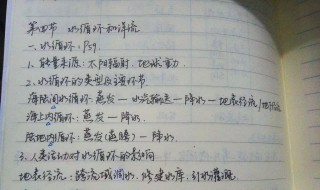 第四节 水循环和洋流
一、水循环：P59.
1. 能量来源：太阳辐射、地球重力.
2. 水循环的类型及环节
海陆间水循环：蒸发—水汽输送—降水—地表径流/地下径流
海上内循环：蒸发—降水.
陆地内循环：蒸发(蒸腾)—降水.
3. 人类活动对水循环的影响
地表径流：跨流域调水，修建水库，引水灌溉